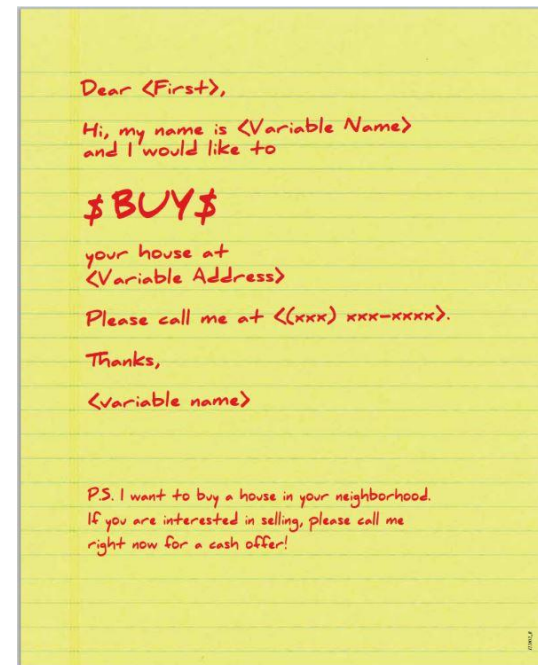 Dear <First>,
Hi, my name is <Variable Name>
and I would like to
$BUY$
your house at
<Variable Address>
Please call me at <(xxx) xxx-xxxx>.
Thanks,
<variable name>
P.S. I want to buy a house in your neighborhood.
If you are interested in selling, please call me
right now for a cash offer!